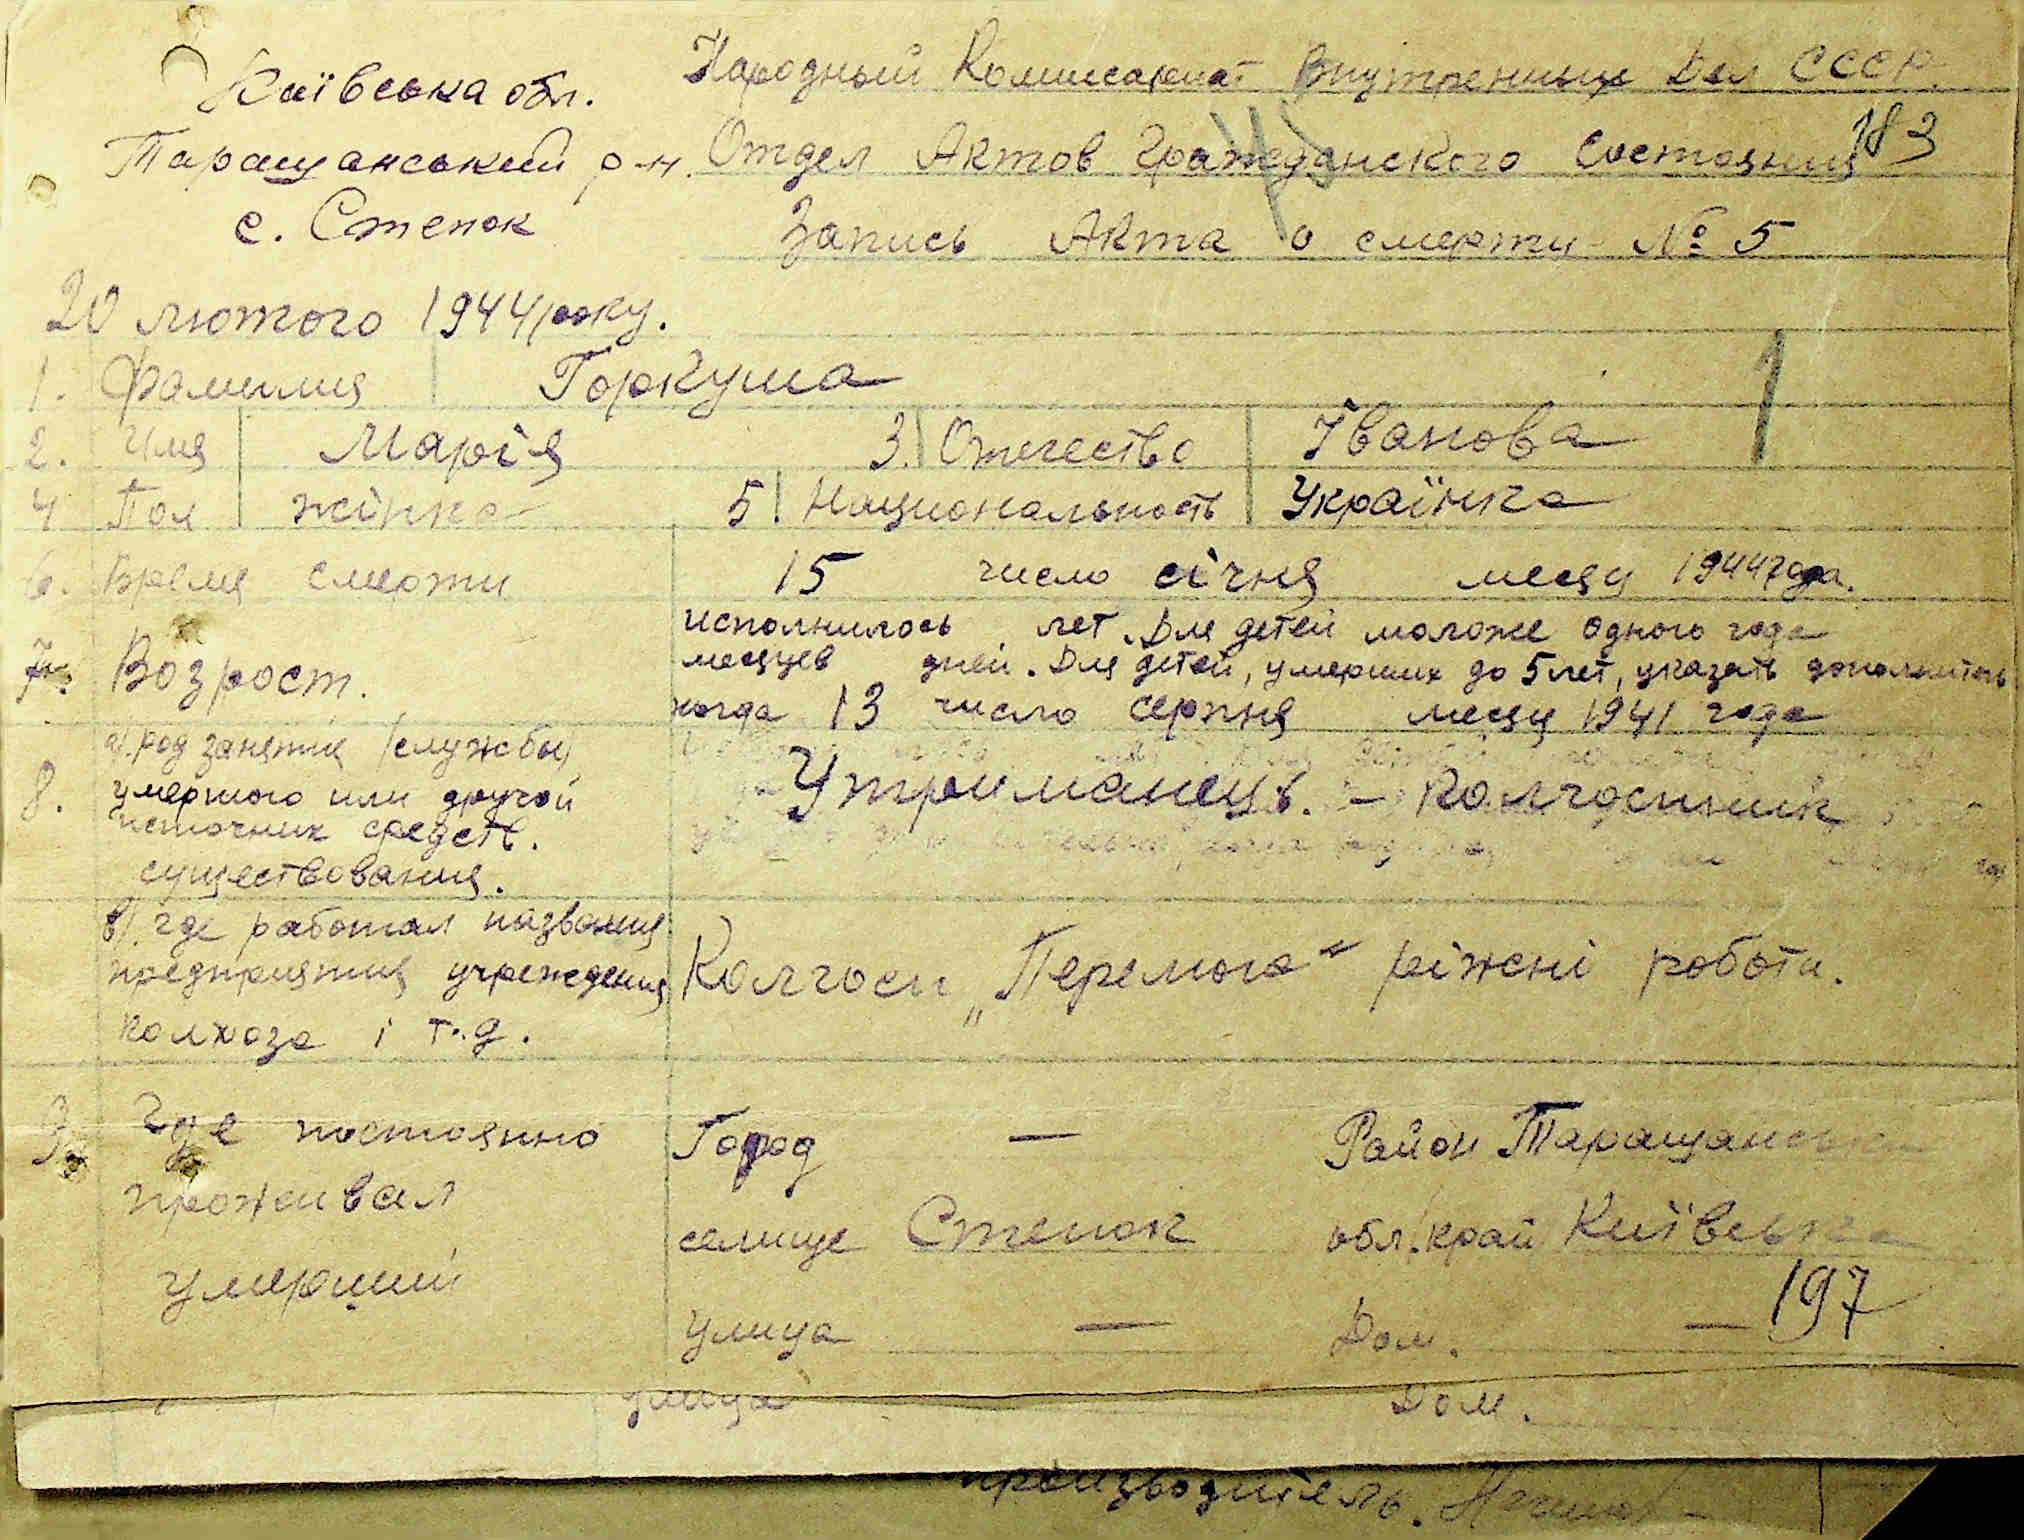 Київська обл.
Таращанський р-н.
с. Степок
Народный Комиссариат Внутренных Дел СССР.
Отдел Актов Гражданского Состояния
183
Запись Акта о смерти № 5
20 лютого 1944 року.
1. Фамилия Горкуша
2. Имя Марія 3. Отчество Іванова
4 Пол жінка 5. Национальность Українка
6. Время смерти 15 число січня месяц 1944 года.
7. Возрост. исполнилось лет. Для детей моложе одного года
месяцев дней. Для детей, умерших до 5 лет, указать дополнительно
когда 13 число серпня месяц 1941 года
8. а/. род занятия /службы/
умершого или другой
источник средств.
существования.
Утриманець. - Колгоспник
в/. где работал названия
предприятия учреждения
колхоза і т.д.
Колгосп „Перемога" ріжні роботи.
9. Где постоянно
проживал
умерший
Город — Район Таращанськи
селище Степок обл./край Київська
улица — Дом. —
197
улица Дом.
производитель.